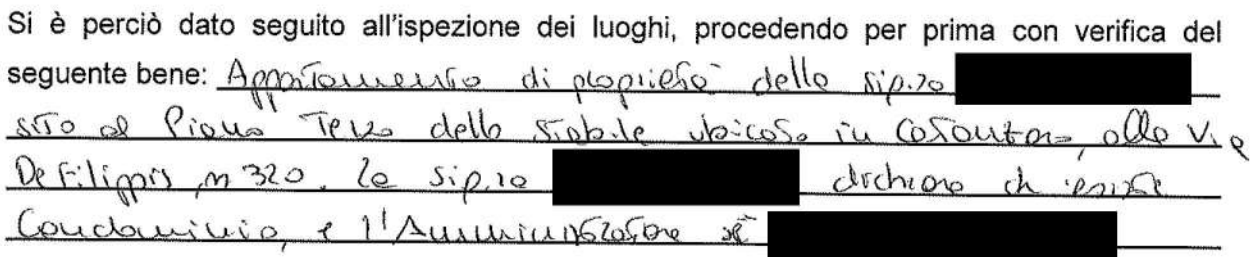 Si è perciò dato seguito all'ispezione dei luoghi, procedendo per prima con verifica del
seguente bene: Appartamento di proprietà della sig.ra
sito al Piano Terzo dello stabile ubicato in Catanzaro, alla Via
De Filippis, n 320. La sig.ra dichiara ch esiste
Condominio, e l'Amministratore è